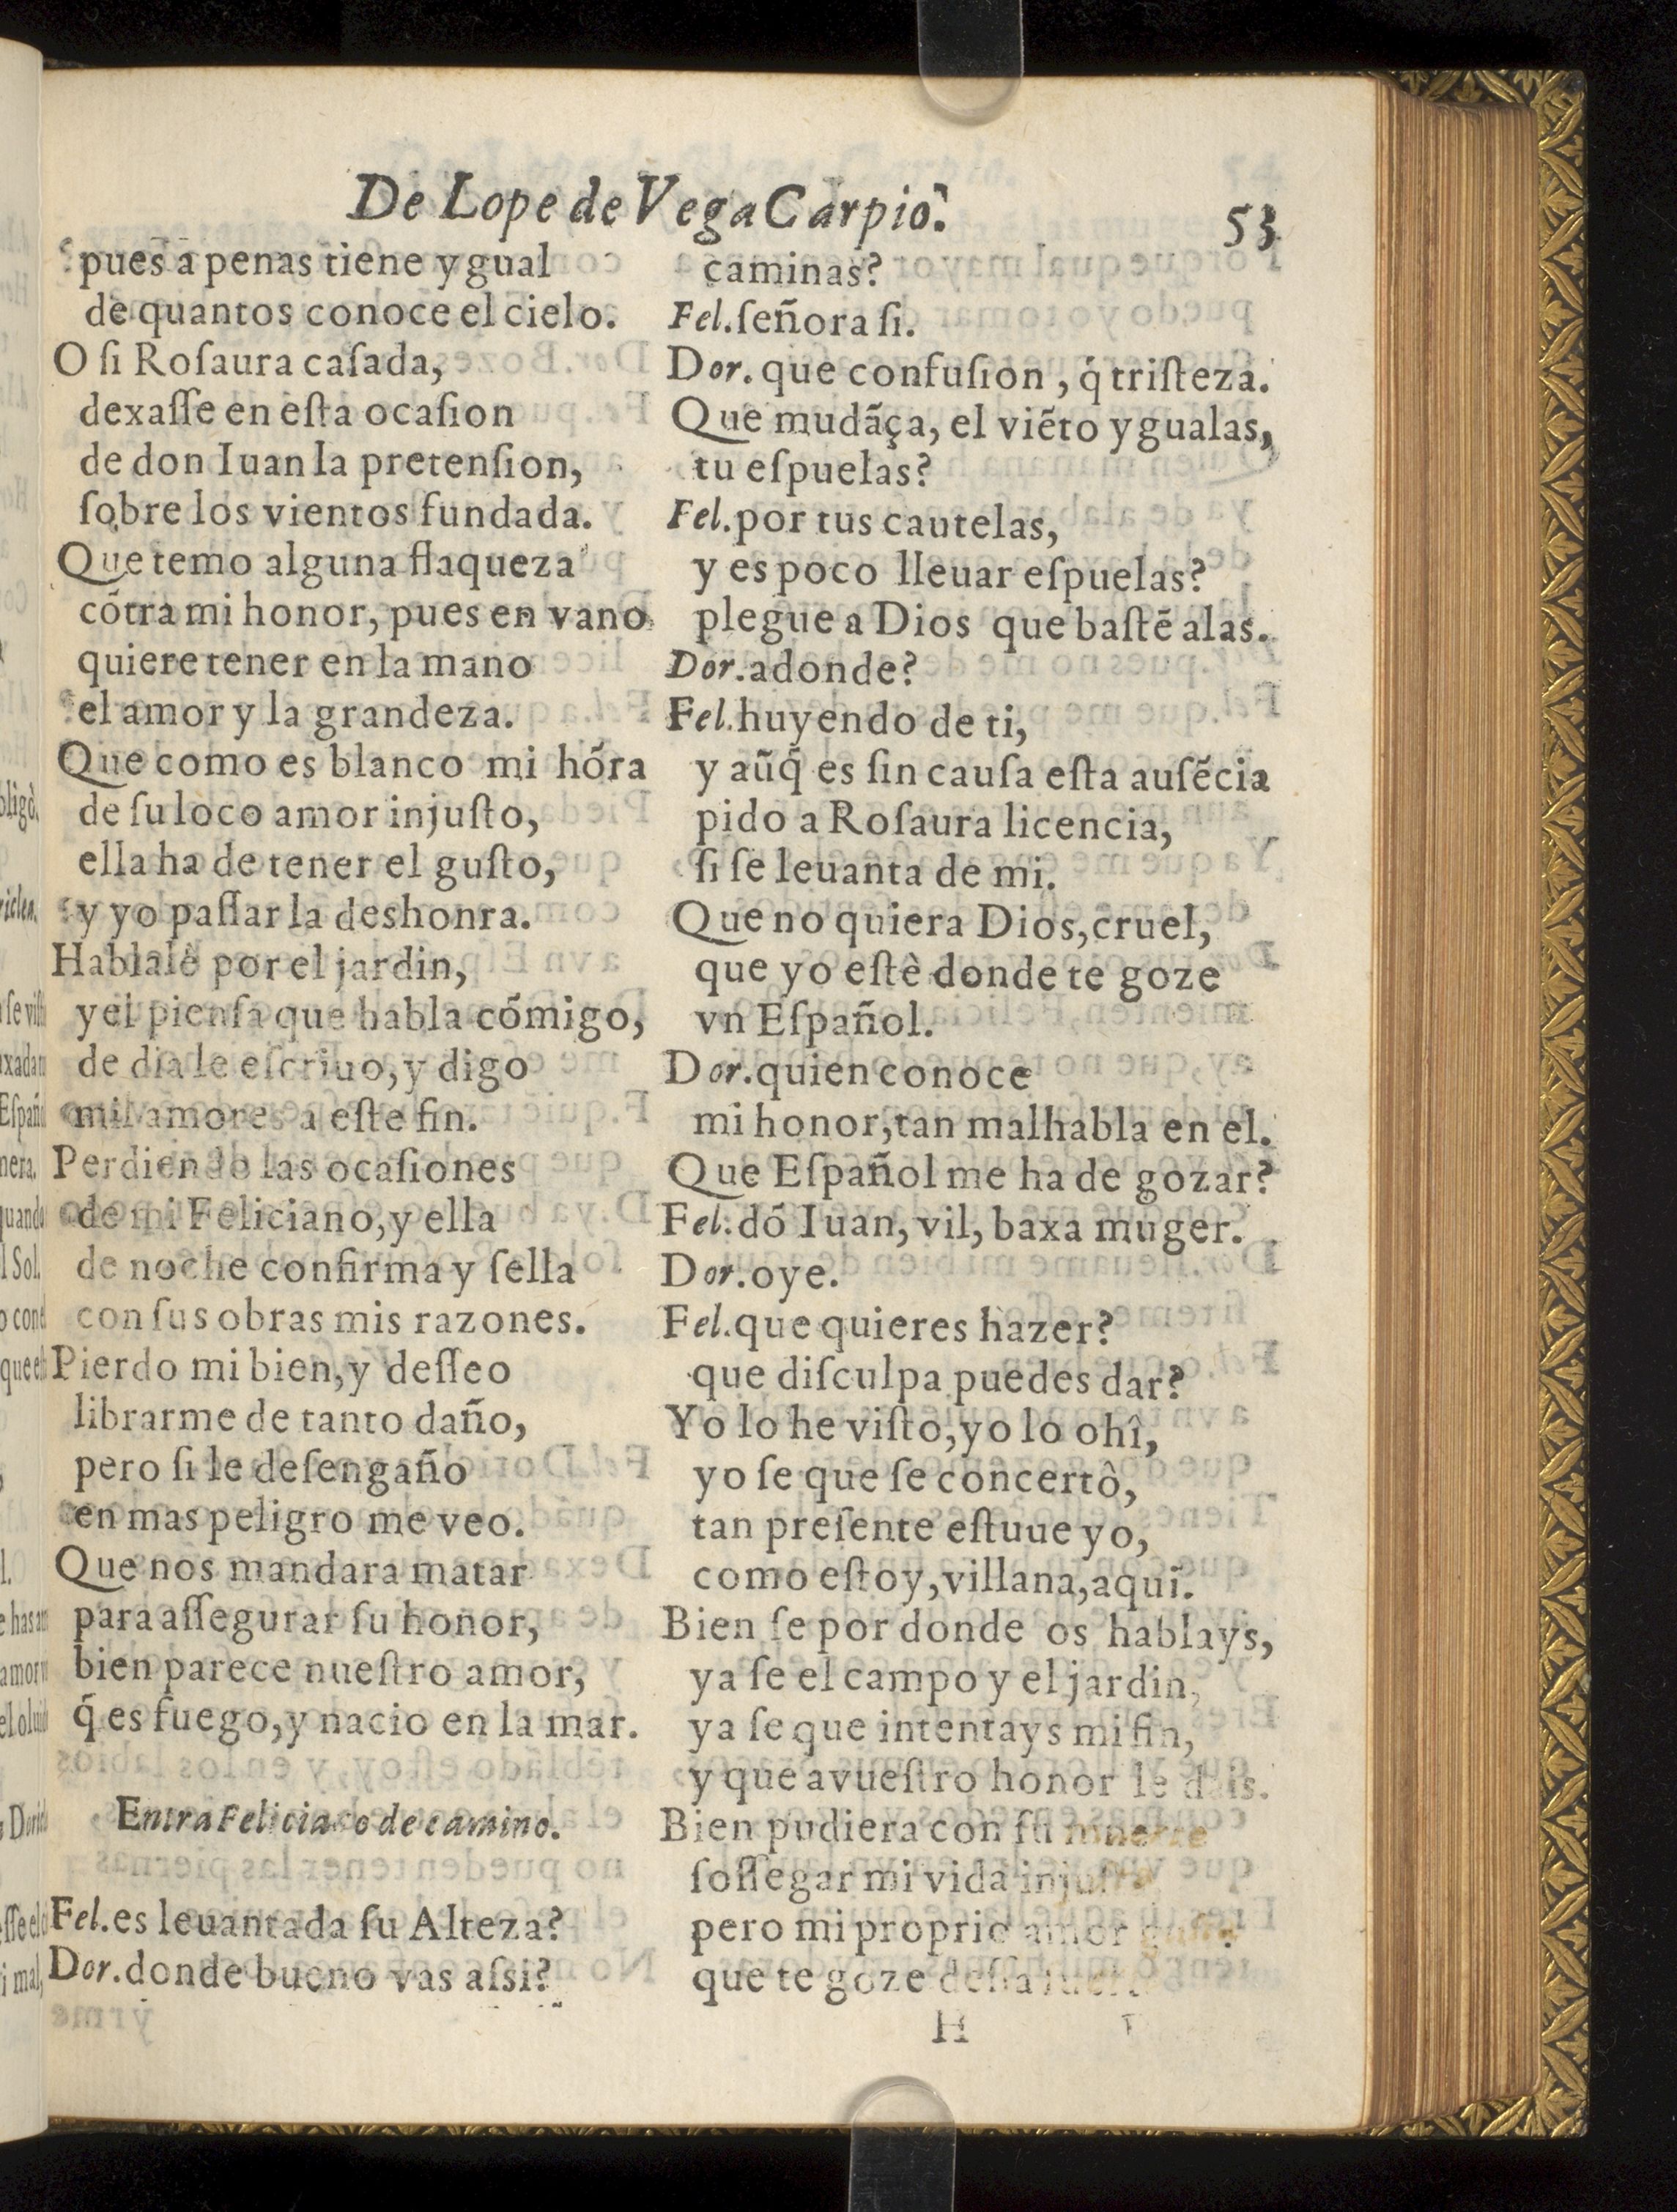 De Lope de Vega Carpio.
53
pues a penas tiene ygual
de quantos conoce el cielo.
O ſi Roſaura caſada,
dexaſſe en eſta ocaſion
de don Iuan la pretenſion,
ſobre los vientos fundada.
Que temo alguna flaqueza
cõtra mi honor, pues en vano
quiere tener en la mano
el amor y la grandeza.
Que como es blanco mi hõra
de ſu loco amor injuſto,
ella ha de tener el guſto,
y yo paſſar la deshonra.
Hablale por el jardin,
y el pienſa que habla cõmigo,
de dia le eſcriuo, y digo
mil amores a eſte fin.
Perdiendo las ocaſiones
de mi Feliciano, y ella
de noche confirma y ſella
con ſus obras mis razones.
Pierdo mi bien, y deſſeo
librarme de tanto daño,
pero ſi le deſengaño
en mas peligro me veo.
Que nos mandara matar
para aſſegurar ſu honor,
bien parece nueſtro amor,
q̃ es fuego, y nacio en la mar.
Entra Feliciano de camino.
Fel. es leuantada ſu Alteza?
Dor. donde bueno vas aſsi?
caminas?
Fel. ſeñora ſi.
Dor. que confuſion, q̃ triſteza.
Que mudãça, el viẽto ygualas,
tu eſpuelas?
Fel. por tus cautelas,
y es poco lleuar eſpuelas?
plegue a Dios que baſtẽ alas.
Dor. adonde?
Fel. huyendo de ti,
y aũq̃ es ſin cauſa eſta auſẽcia
pido a Roſaura licencia,
ſi ſe leuanta de mi.
Que no quiera Dios, cruel,
que yo eſtè donde te goze
vn Eſpañol.
Dor. quien conoce
mi honor, tan mal habla en el.
Que Eſpañol me ha de gozar?
Fel. dõ Iuan, vil, baxa muger.
Dor. oye.
Fel. que quieres hazer?
que diſculpa puedes dar?
Yo lo he viſto, yo lo ohî,
yo ſe que ſe concertô,
tan preſente eſtuue yo,
como eſtoy, villana, aqui.
Bien ſe por donde os hablays,
ya ſe el campo y el jardin,
ya ſe que intentays mi fin,
y que a vueſtro honor le dais.
Bien pudiera con ſu muerte
ſoſſegar mi vida
pero mi proprio amor
que te goze deſſa
H